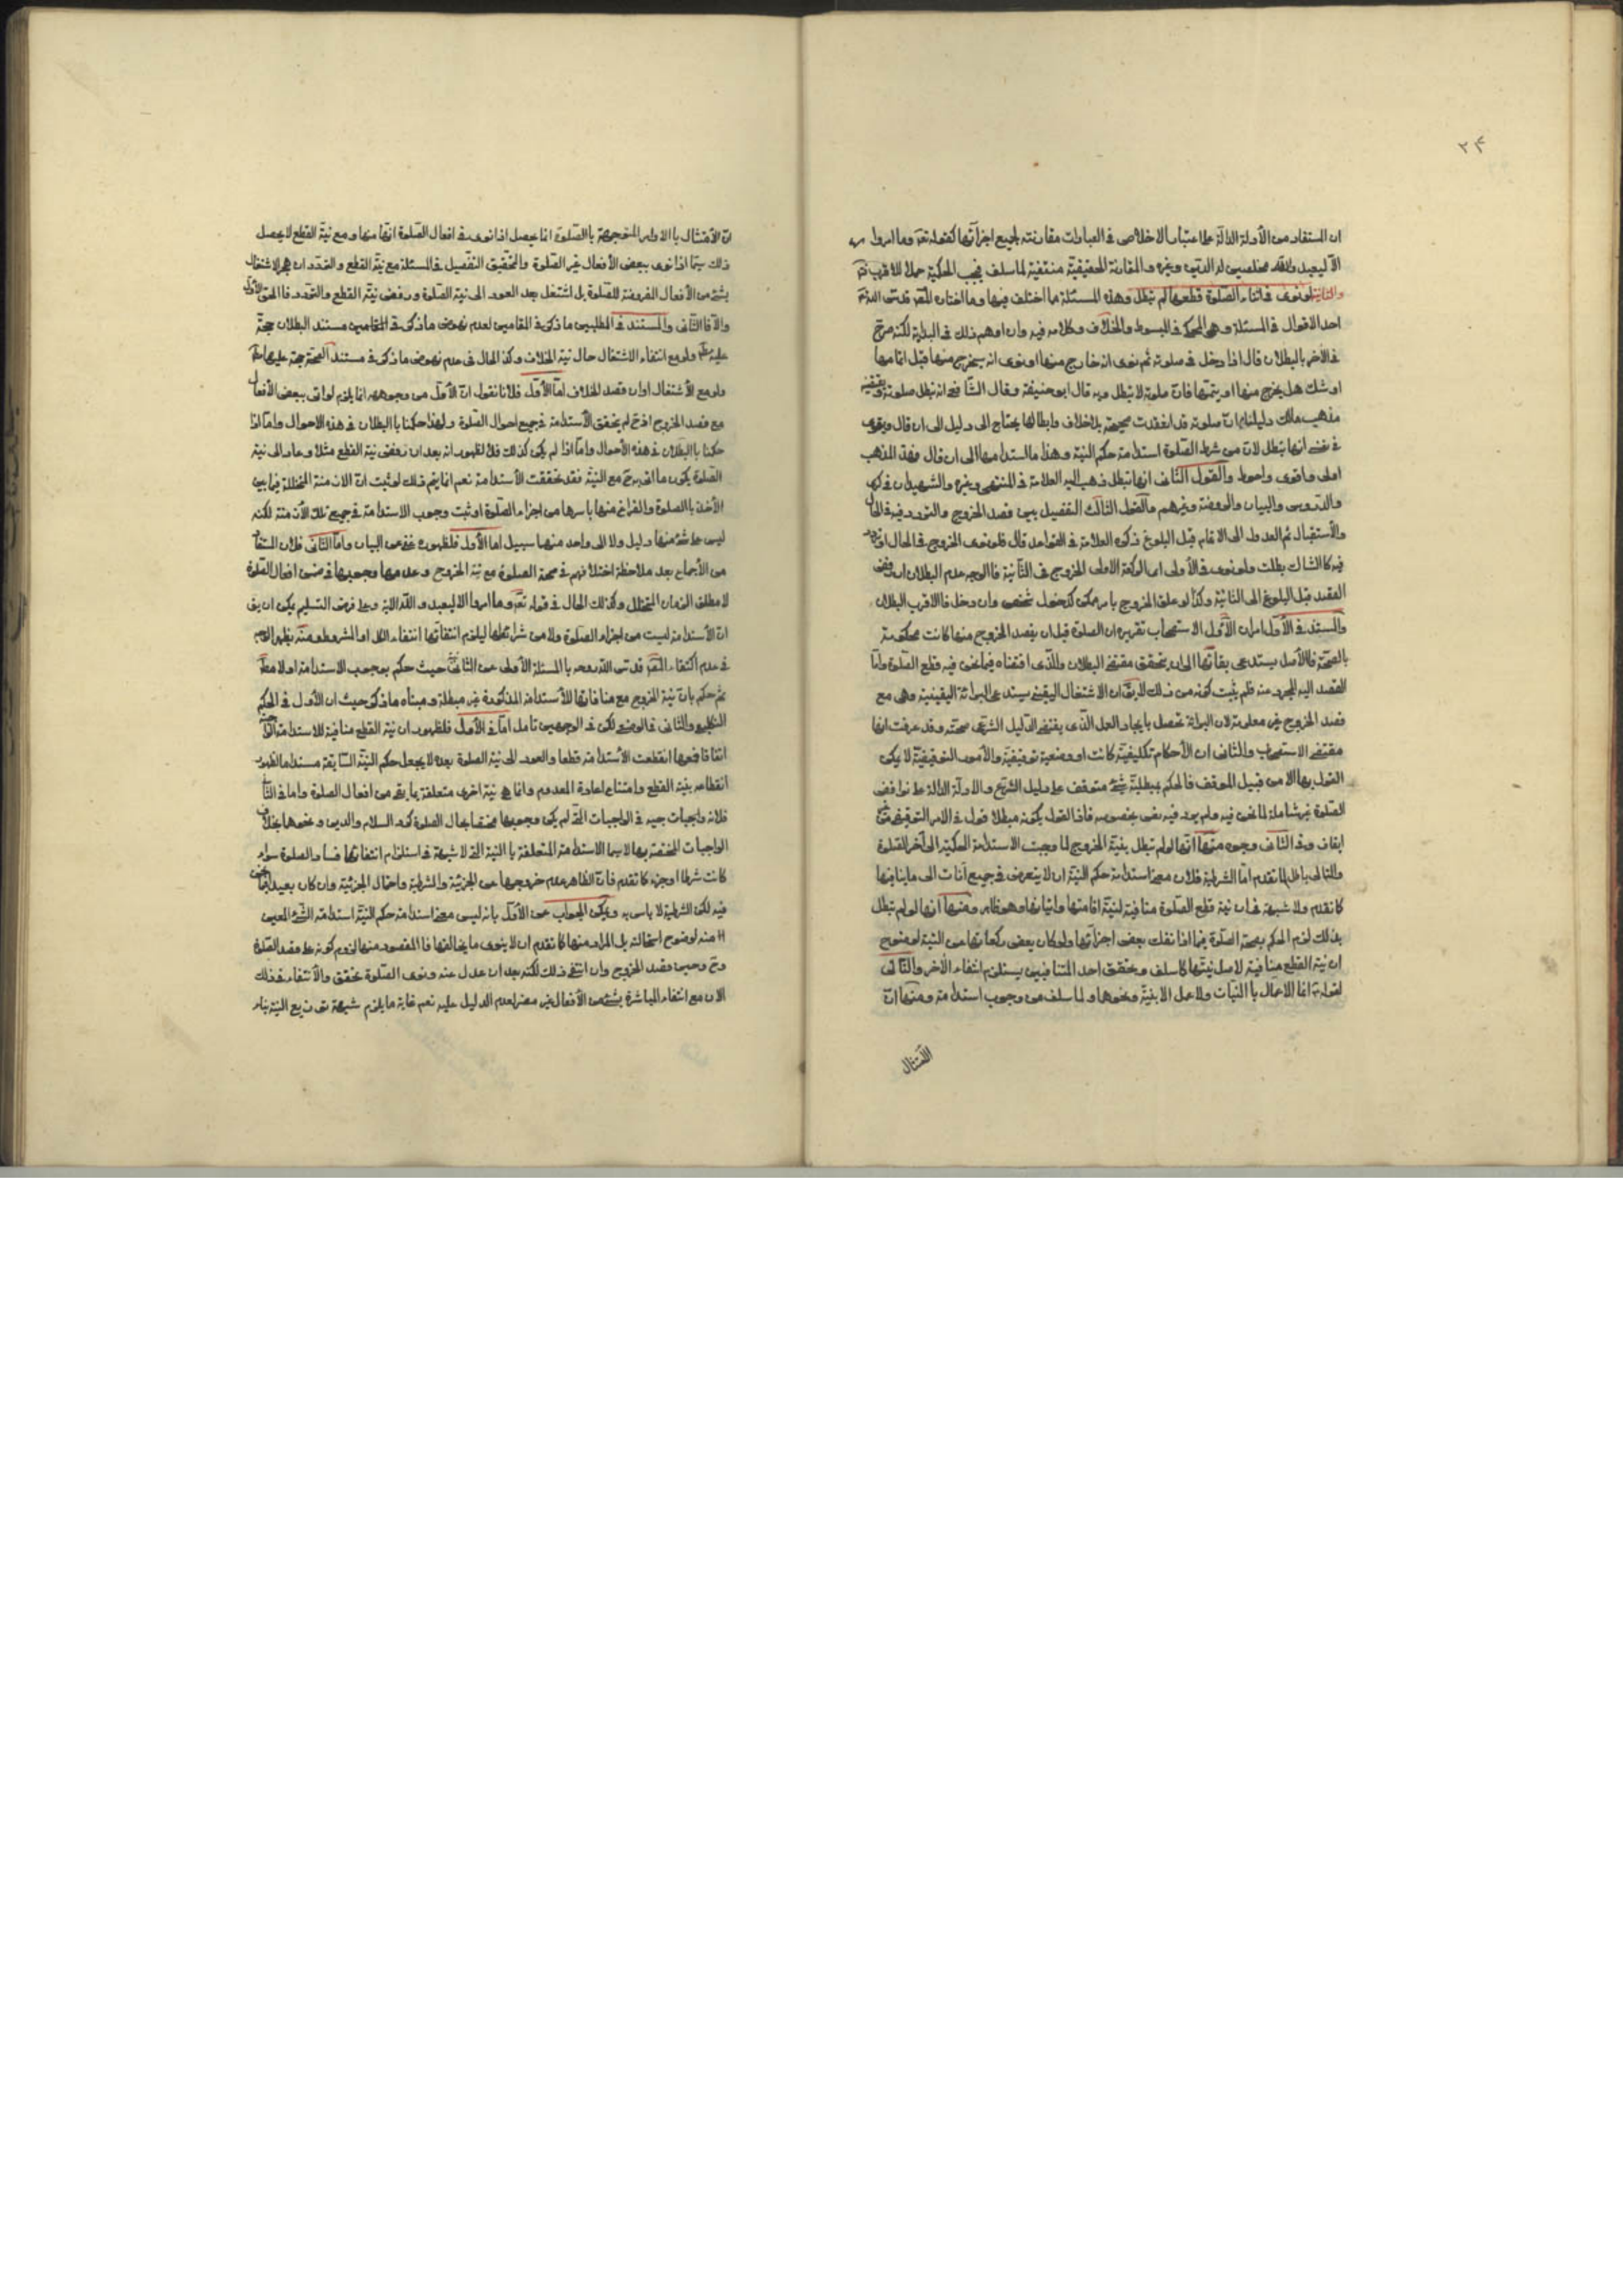 ۲۴
ان المستفاد من الأدلة الدالة على اعتبار الاخلاص في العبادات مقارنته لجميع اجزائها كقوله تعالى وما امروا
الا ليعبدوا الله مخلصين له الدين وغيره والمقارنة الحقيقية منتفية لما سلف فيجب الحكمية حملا للاقرب
والثانية لو نوى في اثناء الصلوة قطعها لم تبطل وهذه المسئلة مما اختلف فيها وما اختاره المص قدس الله
احد الاقوال في المسئلة وهو المحكى في المبسوط والخلاف وكلامه فيه وان اوهم ذلك في البداية لكنه صرح
في الآخر بالبطلان قال اذا دخل في صلوته ثم نوى انه خارج منها او نوى انه سيخرج منها قبل اتمامها
او شك هل يخرج منها او يتمها فان صلوته لا تبطل وبه قال ابو حنيفة وقال الشافعي انه تبطل صلوته
مذهب مالك دليلنا ان صلوته قد انعقدت صحيحة بلا خلاف وابطالها يحتاج الى دليل الى ان قال ويقوى
في نفسى انها تبطل لان من شرط الصلوة استدامة حكم النية وهذا ما استدامها الى ان قال فهذا المذهب
اولى واقوى واحوط والقول الثانى انها تبطل ذهب اليه العلامة في المنتهى وغيره والشهيدان في
والدروس والبيان والروضة وغيرهم والقول الثالث التفصيل بين قصد الخروج والتردد فيه في الحال
والأستقبال ثم العدول الى الاتمام قبل البلوغ ذكره العلامة في القواعد قال فلو نوى الخروج في الحال او تردد
فيه كالشاك بطلت ولو نوى في الأولى اى الركعة الاولى الخروج في الثانية فالوجه عدم البطلان ان رفض
القصد قبل البلوغ الى الثانية وكذا لو علق الخروج بامر ممكن كدخول شخص وان دخل فالاقرب البطلان
والمستند في الأول امران الأول الاستصحاب تقريره ان الصلوة قبل ان يقصد الخروج منها كانت محكومة
بالصحة فالأصل يستدعى بقائها الى ان يتحقق مقتضى البطلان والذى اقتضاه فيما نحن فيه قطع الصلوة واما
القصد اليه المجرد منه فلم يثبت كونه من ذلك لا يق ان الاشتغال اليقينى يستدعى البرائة اليقينية وهى مع
قصد الخروج غير معلومة لان البرائة تحصل بايجاد العمل الذى يقتضى الدليل الشرعى صحته وقد عرفت انها
مقتضى الاستصحاب والثانى ان الأحكام تكليفية كانت او وضعية توقيفية والأمور التوقيفية لا يمكن
القول بها الا من قبيل الموقف فالحكم بمبطلية شئ متوقف على دليل الشرع والادلة الدالة على نواقض
الصلوة غير شاملة لما نحن فيه ولم يرد فيه نص بخصوصه فاذا القول بكونه مبطلا قول في الامر التوقيفى من
ايقاف وفي الثانى وجوه منها انها لو لم تبطل بنية الخروج لما وجبت الاستدامة الحكمية الى آخر الصلوة
والتالى باطل لما تقدم اما الشرطية فلان معنى استدامة حكم النية ان لا يتعرض في جميع آنات الى ما ينافيها
كما تقدم ولا شبهة في ان نية قطع الصلوة منافية لنية اقامتها واتيانها وهو ظاهر ومنها انها لو لم تبطل
بذلك لزم الحكم بصحة الصلوة فيما اذا نقلت بعض اجزائها ولو كان بعض ركعاتها من النية لوضوح
ان نية القطع منافية لاصل نيتها كما سلف وتحقق احد المتنافيين يستلزم انتفاء الآخر والتالى
لقوله انما الاعمال بالنيات ولا عمل الا بنية ونحوها ولما سلف من وجوب استدامة ومنها ان
الأمتثال
ان الأمتثال بالاوامر المتوجهة بالصلوة انما يحصل اذا نوى في افعال الصلوة انها منها ومع نية القطع لا يحصل
ذلك سيما اذا نوى ببعض الأفعال غير الصلوة والتحقيق التفصيل في المسئلة مع نية القطع والتردد ان لم يشتغل
بشئ من الأفعال المفروضة للصلوة بل اشتغل بعد العود الى نية الصلوة ورفض نية القطع والتردد فالحق الأول
والا فالثانى والمستند في المطلبين ما ذكر في المقامين لعدم نهوض ما ذكر في المقامين مستند البطلان حجة
عليه ولو مع انتفاء الاشتغال حال نية الخلاف وكذا الحال في عدم نهوض ما ذكر في مستند الصحة حجة عليها
ولو مع الأشتغال اوان قصد الخلاف اما الأول فلانا نقول ان الأول من وجوهه انما يلزم لو اتى ببعض الأفعال
مع قصد الخروج اذ ح لم يتحقق الأستدامة في جميع احوال الصلوة ولهذا حكمنا بالبطلان في هذه الاحوال واما اذا
حكمنا بالبطلان في هذه الأحوال واما اذا لم يكن كذلك فلا لظهور انه بعد ان رفض نية القطع مثلا وعاد الى نية
الصلوة يكون ما اتى به مع النية فقد تحققت الأستدامة نعم انما يتم ذلك لو ثبت ان الازمنة المتخللة فيما بين
الأخذ بالصلوة والفراغ منها باسرها من اجزاء الصلوة او ثبت وجوب الاستدامة في جميع تلك الأزمنة لكنه
ليس على شئ منها دليل ولا الى واحد منهما سبيل اما الأول فلظهوره غنى عن البيان واما الثانى فلان المستفاد
من الأجماع بعد ملاحظة اختلافهم في صحة الصلوة مع نية الخروج وعدمها وجوبها في ضمن افعال الصلوة
لا مطلق الزمان المتخلل وكذلك الحال في قوله تعالى وما امروا الا ليعبدوا الله الاية وعلى فرض التسليم يمكن ان يق
ان الأستدامة ليست من اجزاء الصلوة ولا من شرائطها ليلزم انتفائها انتفاء الكل او المشروط ومنه يظهر الوجه
في عدم اكتفاء المص قدس الله روحه بالمسئلة الأولى عن الثانية حيث حكم بوجوب الاستدامة اولا
ثم حكم بان نية الخروج مع منافاتها للأستدامة المذكورة غير مبطلة ومبناه ما ذكر حيث ان الأول في الحكم
التكليفى والثانى في الوضعى لكن في الوجهين تأمل اما في الأول فلظهور ان نية القطع منافية للاستدامة
اتفاقا فمعها انقطعت الأستدامة قطعا والعود الى نية الصلوة بعده لا يجعل حكم النية السابقة مستداما لظهور
انقطاعه بنية القطع وامتناع اعادة المعدوم وانما هى نية اخرى متعلقة بما بقى من افعال الصلوة واما في الثانى
فلانه واجبات جيه في الواجبات التى لم يكن وجوبها مختصا بحال الصلوة كرد السلام والدين ونحوها بخلاف
الواجبات المختصة بها لا سيما الاستدامة المتعلقة بالنية التى لا شبهة في استلزام انتفائها فساد الصلوة سواء
كانت شرطا او جزء كما تقدم فان الظاهر عدم خروجها عن الجزئية والشرطية واحتمال الجزئية وان كان بعيدا
فيه لكن الشرطية لا بأس به ويمكن الجواب عن الأول بانه ليس معنى استدامة حكم النية استدامة الشئ المعين
منه لوضوح استحالته بل المراد منها كما تقدم ان لا ينوى ما يخالفها فالمقصود منها لزوم كونه على قصد الصلوة
وح وحين قصد الخروج وان انتفى ذلك لكنه بعد ان عدل عنه ونوى الصلوة تحقق والأنتفاء في ذلك
الان مع انتفاء المباشرة بشئ من الأفعال غير مضر لعدم الدليل عليه نعم غاية ما يلزم شبهة توزيع النية بناء